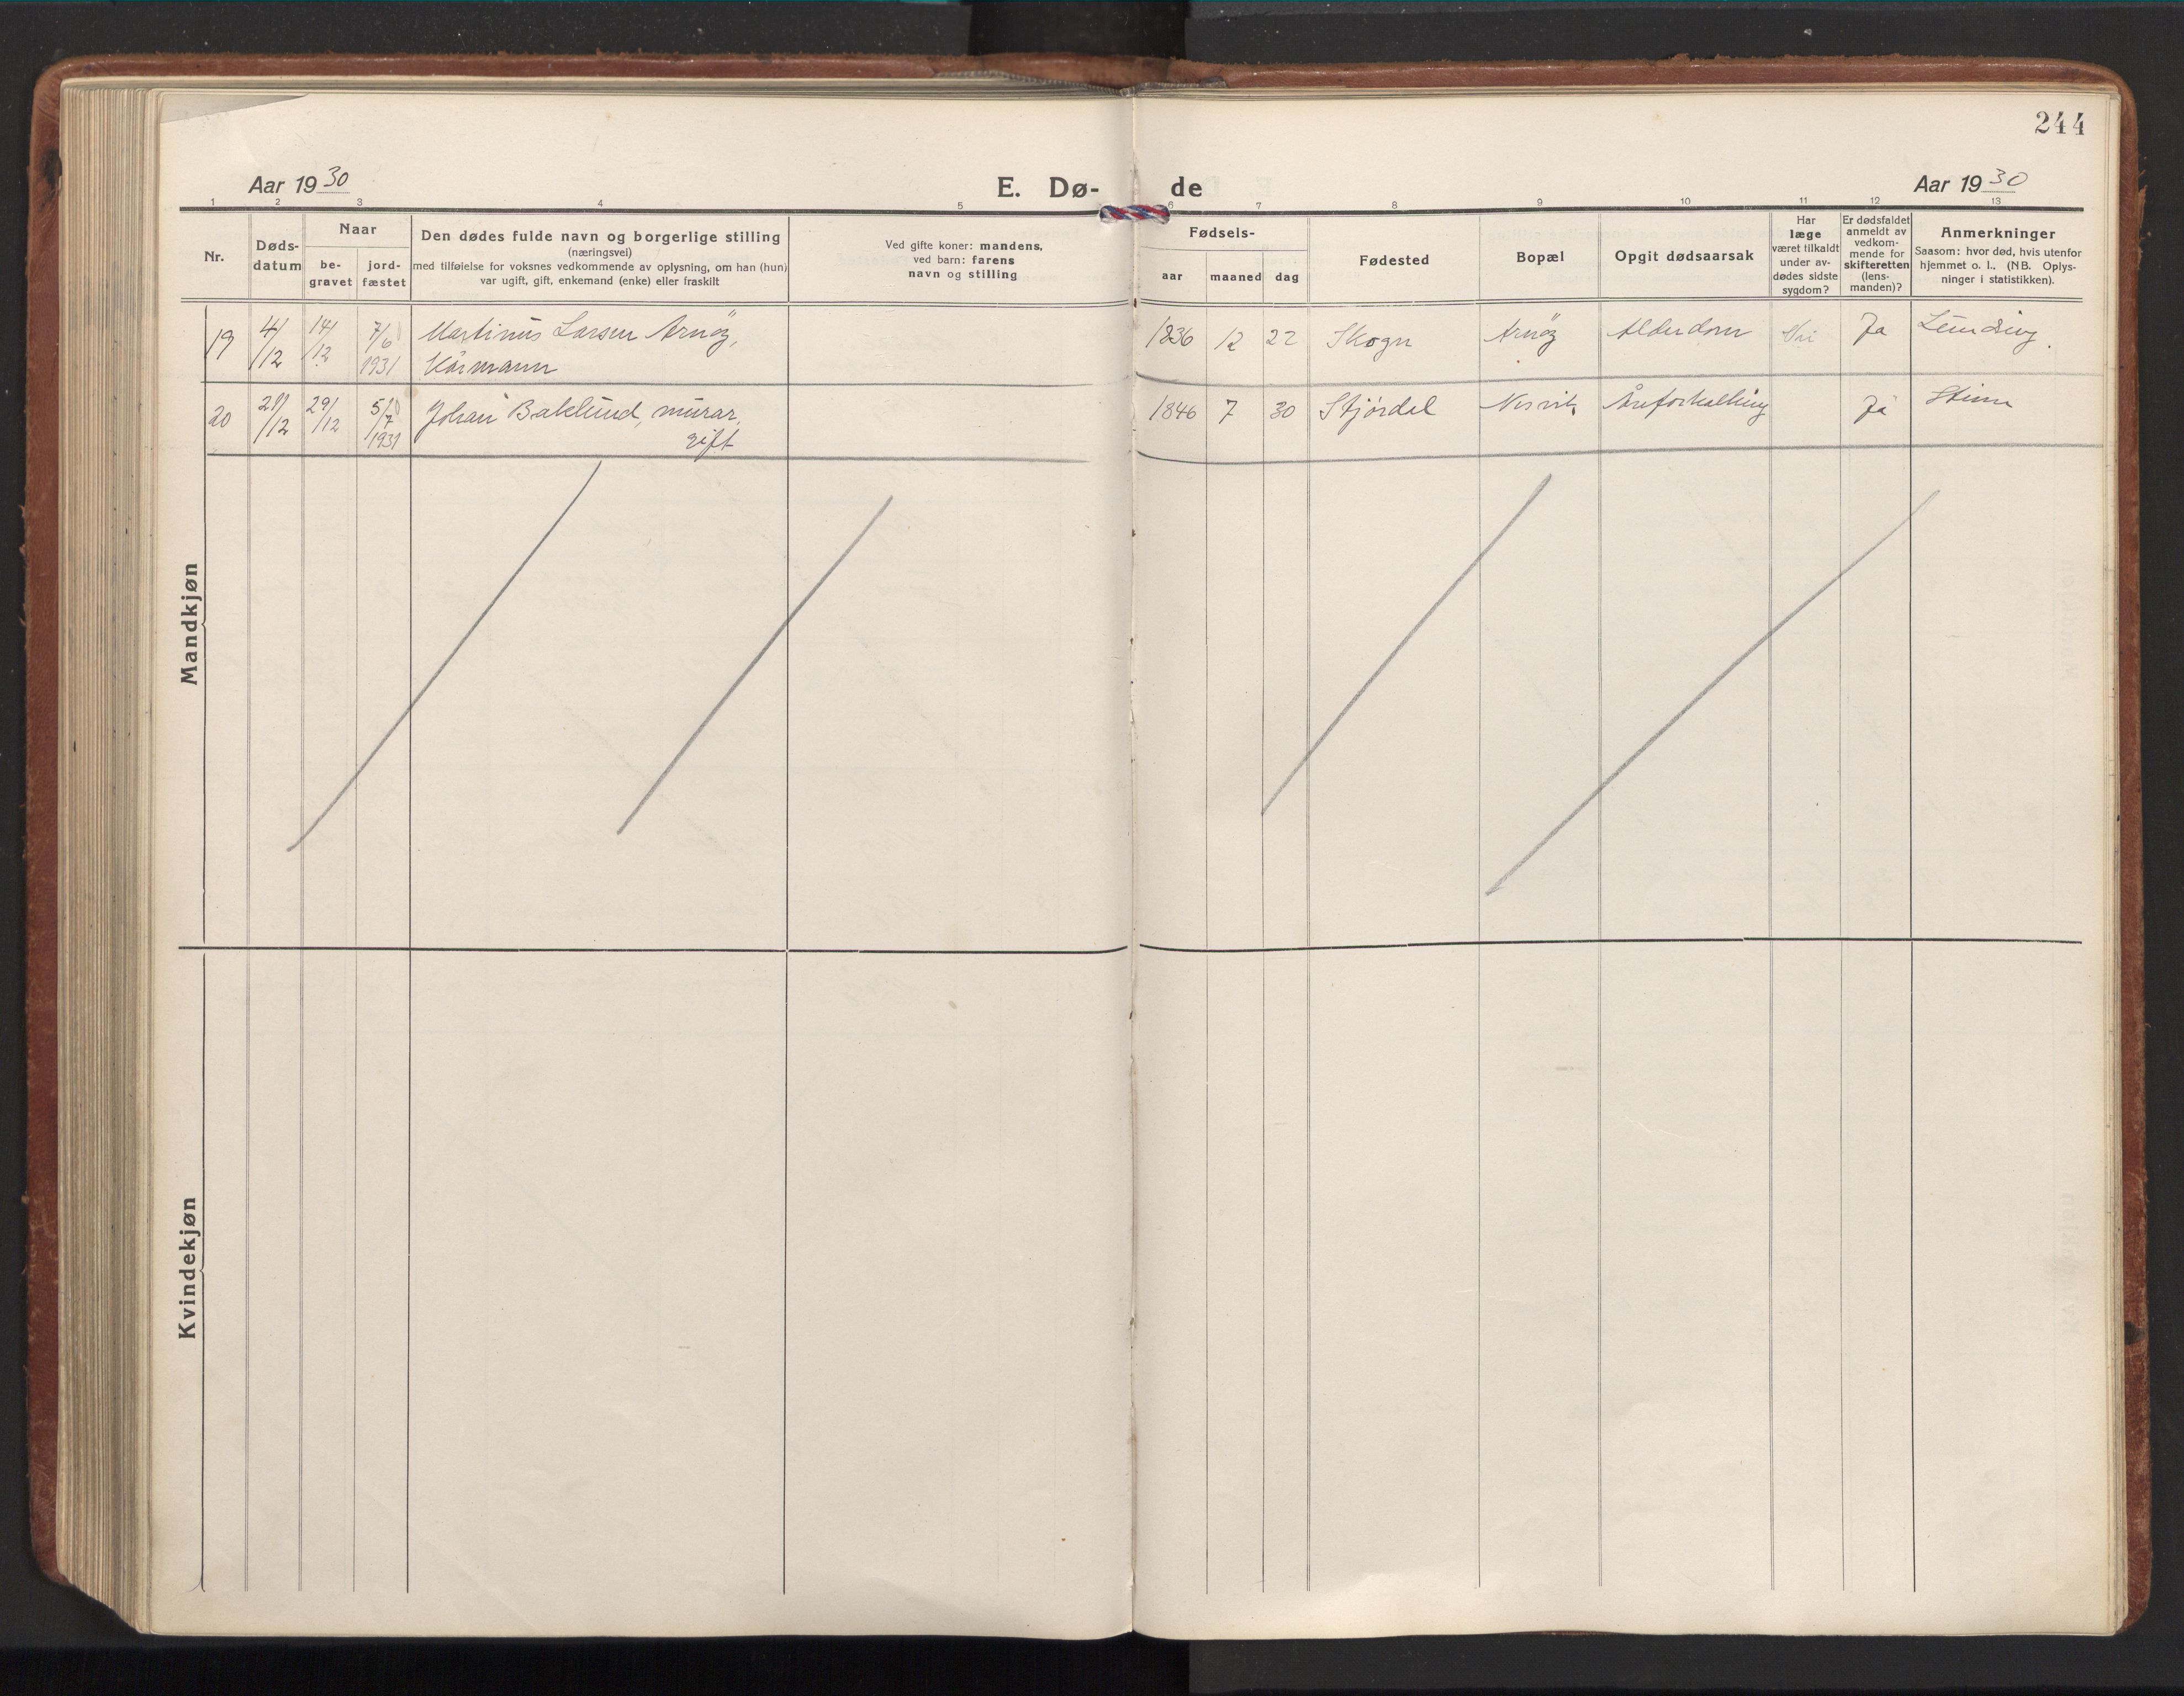 244
Aar 1930
E. Dø-
de
Aar 1930
1 2 3 4 5 6 7 8 9 10 11 12 13
Nr.
Døds-
datum
Naar
be-
gravet
jord-
fæstet
Den dødes fulde navn og borgerlige stilling
(næringsvei)
med tilføielse for voksnes vedkommende av oplysning, om han (hun)
var ugift, gift, enkemand (enke) eller fraskilt
Ved gifte koner: mandens,
ved barn: farens
navn og stilling
Fødsels-
aar maaned dag
Fødested
Bopæl
Opgit dødsaarsak
Har
læge
været tilkaldt
under av-
dødes sidste
sygdom?
Er dødsfaldet
anmeldt av
vedkom-
mende for
skifteretten
(lens-
manden)?
Anmerkninger
Saasom: hvor død, hvis utenfor
hjemmet o. l., (NB. Oplys-
ninger i statistikken).
19 4/12 14/12 7/6 1931 Martinus Larsen Arnöy,
Kårmann
1836 12 22 Skogn Arnöy Alderdom Ja
20 29/12 5/7 1931 Johan Baklund, murar,
gift
1846 7 30 Stjórdal Nesvik Åreforkalking Ja
Mandkjøn
Kvindekjøn